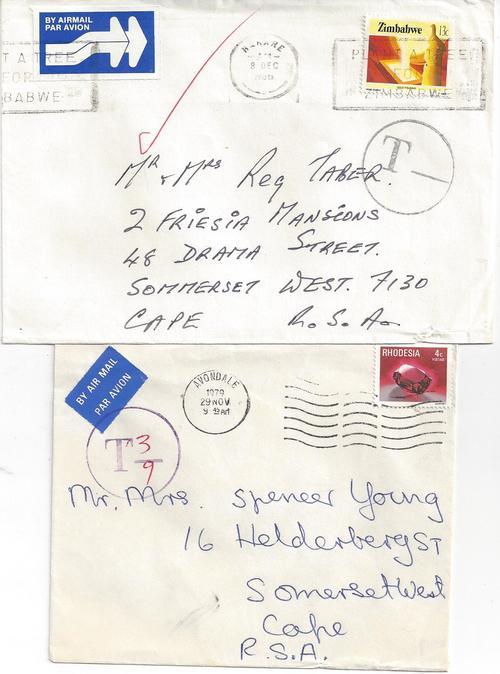 BY AIRMAIL
PAR AVION
Zimbabwe 13c
HARARE
8 DEC
T A TREE
FOR
BABWE
TREE
FO
ZIMBABWE
T
MR & MRS REG TABER.
2 FRIESIA MANSIONS
48 DRAMA STREET.
SOMMERSET WEST. 7130
CAPE R.S.A.
BY AIR MAIL
PAR AVION
AVONDALE
1979
29 NOV
9 AM
RHODESIA 4c
T 3
9
Mr. Mrs. Spencer Young
16 Helderberg ST
Somerset West
Cape
R.S.A.